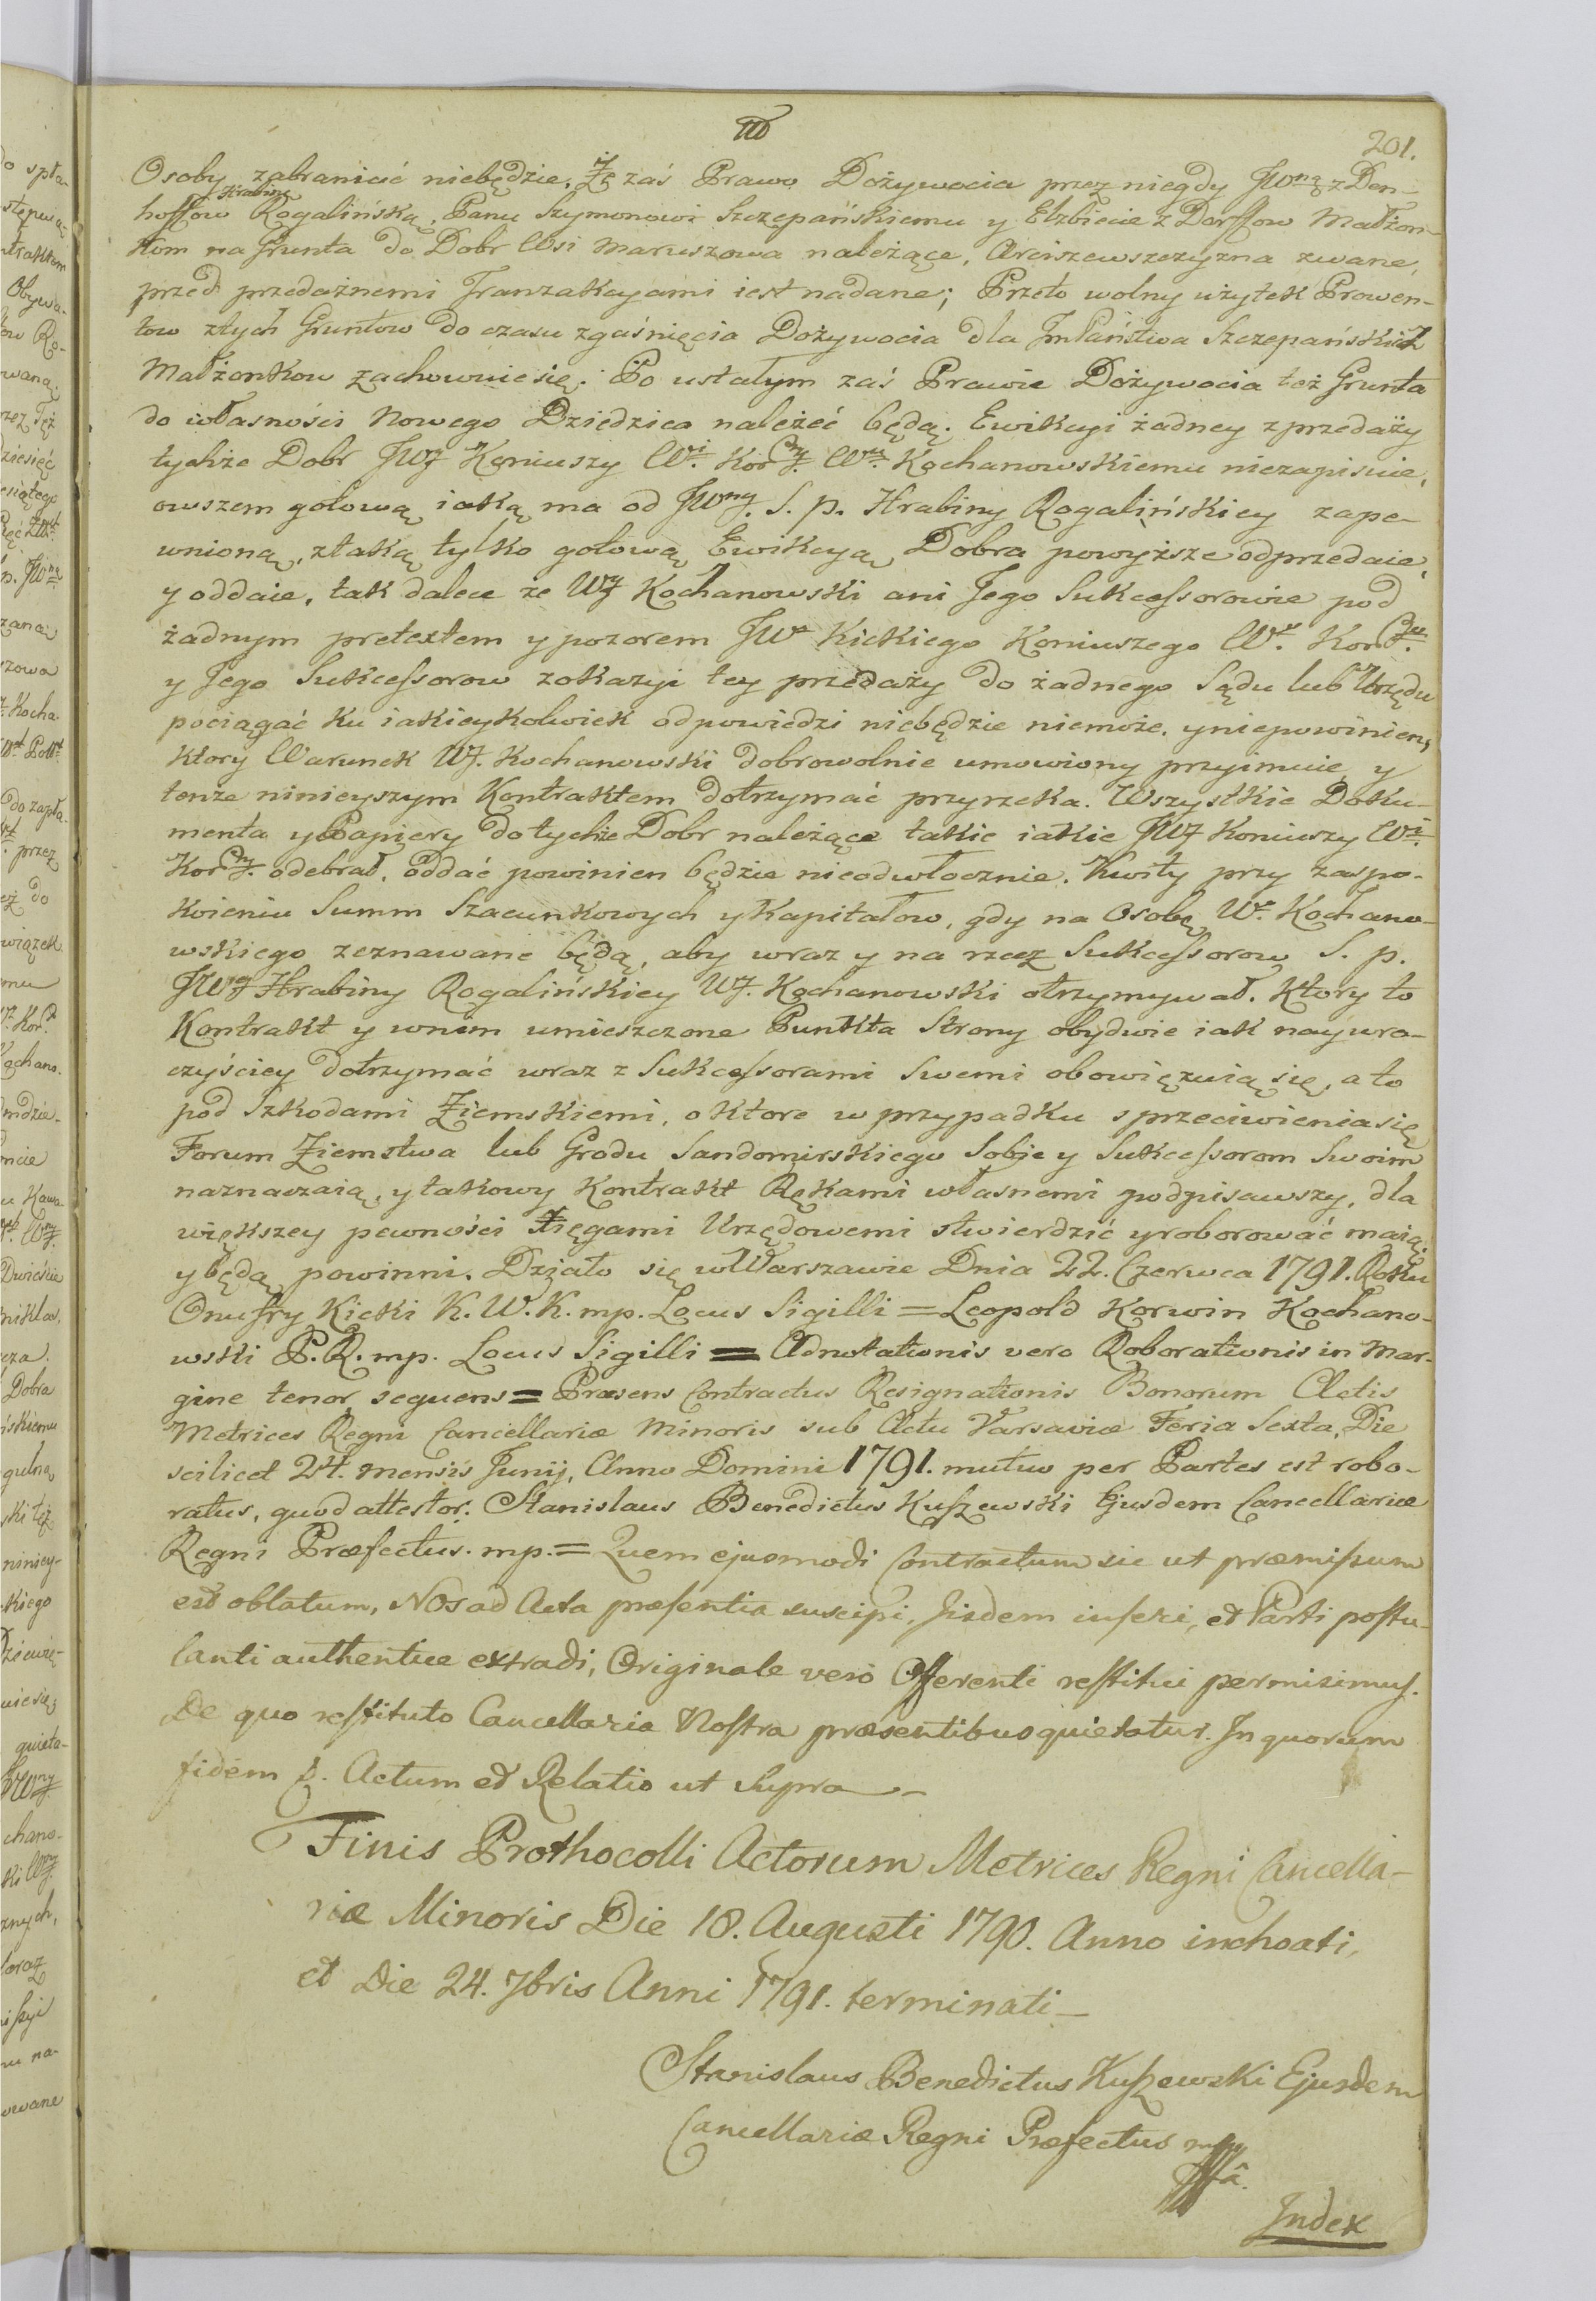 201.
Osoby zabraniać niebędzie. Że zaś Prawo Dożywocia przez niegdy JWną z Den-
hoffow Hrabinę Rogalińską, Panu Szymonowi Szczepańskiemu y Elzbiecie z Dorffow Małżon-
kom na Grunta do Dobr Wsi Maruszowa należące, Arciszewszczyzna zwane,
przed przedażnemi Tranzakcyami iest nadane; Przeto wolny użytek Prowen-
tow ztych Gruntow do czasu zgaśnięcia Dożywocia dla ImPaństwa Szczepańskich
Małżonkow zachowuie się. Po ustałym zaś Prawie Dożywocia też Grunta
do własności Nowego Dziedzica należeć będą. Ewikcyi żadney zprzedaży
tychże Dobr JWJ Koniuszy Wi. Korny. Wu. Kochanowskiemu niezapisuie,
owszem gołową iaką ma od JWny. S. p. Hrabiny Rogalińskiey zape-
wnioną, ztaką tylko gołową Ewikcyą Dobra powyższe odprzedaie,
y oddaie, tak dalece że WJ Kochanowski ani Jego Sukcessorowie pod
żadnym pretextem y pozorem JWo Kickiego Koniuszego Wo. Kor.
y Jego Sukcessorow zokazyi tey przedaży do żadnego Sądu lub Urzędu
pociągać ku iakieykolwiek odpowiedzi niebędzie niemoże, yniepowinien,
ktory Warunek WJ. Kochanowski dobrowolnie umowiony przyimuie y
tenże ninieyszym Kontraktem dotrzymać przyrzeka. Wszystkie Doku-
menta y Papiery do tychże Dobr należące takie iakie JWJ Koniuszy Wi.
Korny. odebrał, oddać powinien będzie nieodwłocznie. Kwity przy zaspo-
koieniu Summ Szacunkowych y Kapitałow, gdy na Osobę Wo. Kochano-
wskiego zeznawane będą, aby wraz y na rzecz Sukcessorow S. p.
JWJ Hrabiny Rogalińskiey WJ. Kochanowski otrzymywał. Ktory to
Kontrakt y wnim umieszczone Punkta Strony obydwie iak nayuro-
czyściey dotrzymać wraz z Sukcessorami Swemi obowięzuią się, a to
pod Szkodami Ziemskiemi, o ktore w przypadku sprzeciwienia się
Forum Ziemstwa lub Grodu Sandomirskiego Sobie y Sukcessorom Swoim
naznaczaią, y takowy Kontrakt Rękami własnemi podpisawszy, dla
większey pewności Xięgami Urzędowemi stwierdzić yroborować maią,
y będą powinni. Działo się wWarszawie Dnia 22. Czerwca 1791. Roku
Onufry Kicki K. W. K. mp. Locus Sigilli = Leopold Korwin Kochano-
wski P. R. mp. Locus Sigilli = Adnotationis vero Roborationis in Mar-
gine tenor sequens = Præsens Contractus Resignationis Bonorum Actis
Metrices Regni Cancellariæ Minoris sub Actu Varsaviæ Feria Sexta, Die
scilicet 24. mensis Junij, Anno Domini 1791. mutuo per Partes est robo-
ratus, quod attestor. Stanislaus Benedictus Kuszewski Ejusdem Cancellariæ
Regni Præfectus. mp. = Quem ejusmodi Contractum sic ut præmissum
est oblatum, Nos ad Acta præsentia suscipi, Iisdem inseri, et Parti postu-
lanti authentice extradi, Originale vero Offerenti restitui permisimus.
De quo restituto Cancellaria Nostra præsentibus quietatur. In quorum
fidem p. Actum et Relatio ut Supra
Finis Prothocolli Actorum Metrices Regni Cancella-
riæ Minoris Die 18. Augusti 1790. Anno inchoati,
et Die 24. 7bris Anni 1791. terminati
Stanislaus Benedictus Kuszewski Ejusdem
Cancellariæ Regni Præfectus mp
Index